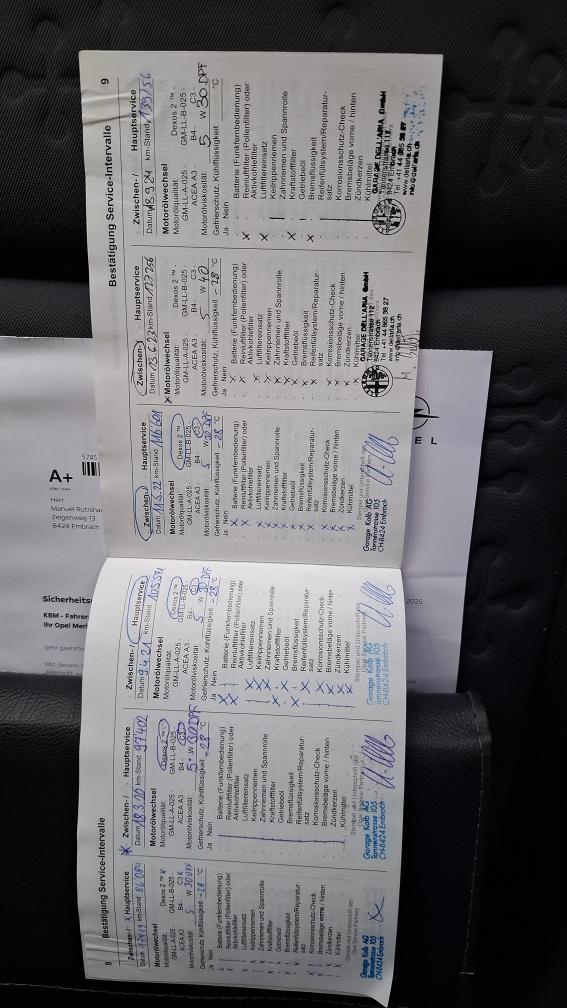 8
Bestätigung Service-Intervalle
Zwischen-/ x Hauptservice
km-Stand 86084
Motorölwechsel
Motorölqualität: Dexos 2 ™ x
GM-LL-A-025 GM-LL-B-025
ACEA A3 B4 C3 x
Motorölviskosität: 5 W 30 DPF
Gefrierschutz, Kühlflüssigkeit -28 °C
Ja Nein
Batterie (Funkfernbedienung)
Reinluftfilter (Pollenfilter) oder
Aktivkohlefilter
Luftfiltereinsatz
Keilrippenriemen
Zahnriemen und Spannrolle
Kraftstofffilter
Getriebeöl
Bremsflüssigkeit
Reifenfüllsystem/Reparatur-
satz
Korrosionsschutz-Check
Bremsbeläge vorne / hinten
Zündkerzen
Kühlmittel
Garage Kolb AG
Tannenstrasse 103
CH-8424 Embrach
x Zwischen-/ Hauptservice
Datum 18.3.20 km-Stand 97402
Motorölwechsel
Motorölqualität: Dexos 2 ™
GM-LL-A-025 GM-LL-B-025
ACEA A3 B4 C3
Motorölviskosität: 5 W 30 DPF
Gefrierschutz, Kühlflüssigkeit -28 °C
Ja Nein
Batterie (Funkfernbedienung)
Reinluftfilter (Pollenfilter) oder
Aktivkohlefilter
Luftfiltereinsatz
Keilrippenriemen
Zahnriemen und Spannrolle
Kraftstofffilter
Getriebeöl
Bremsflüssigkeit
Reifenfüllsystem/Reparatur-
satz
Korrosionsschutz-Check
Bremsbeläge vorne / hinten
Zündkerzen
Kühlmittel
Garage Kolb AG
Tannenstrasse 103
CH-8424 Embrach
Zwischen-/ Hauptservice
Datum 9.4.21 km-Stand 105571
Motorölwechsel
Motorölqualität: Dexos 2 ™
GM-LL-A-025 GM-LL-B-025
ACEA A3 B4 C3
Motorölviskosität: 5 W 30 DPF
Gefrierschutz, Kühlflüssigkeit -28 °C
Ja Nein
Batterie (Funkfernbedienung)
Reinluftfilter (Pollenfilter) oder
Aktivkohlefilter
Luftfiltereinsatz
Keilrippenriemen
Zahnriemen und Spannrolle
Kraftstofffilter
Getriebeöl
Bremsflüssigkeit
Reifenfüllsystem/Reparatur-
satz
Korrosionsschutz-Check
Bremsbeläge vorne / hinten
Zündkerzen
Kühlmittel
Garage Kolb AG
Tannenstrasse 103
CH-8424 Embrach
Bestätigung Service-Intervalle
9
Zwischen-/ Hauptservice
Datum 11.5.22 km-Stand 116601
Motorölwechsel
Motorölqualität: Dexos 2 ™
GM-LL-A-025 GM-LL-B-025
ACEA A3 B4 C3
Motorölviskosität: 5 W 30 DPF
Gefrierschutz, Kühlflüssigkeit -28 °C
Ja Nein
Batterie (Funkfernbedienung)
Reinluftfilter (Pollenfilter) oder
Aktivkohlefilter
Luftfiltereinsatz
Keilrippenriemen
Zahnriemen und Spannrolle
Kraftstofffilter
Getriebeöl
Bremsflüssigkeit
Reifenfüllsystem/Reparatur-
satz
Korrosionsschutz-Check
Bremsbeläge vorne / hinten
Zündkerzen
Kühlmittel
Garage Kolb AG
Tannenstrasse 103
CH-8424 Embrach
Zwischen-/ Hauptservice
Datum km-Stand 127256
x Motorölwechsel
Motorölqualität: Dexos 2 ™
GM-LL-A-025 GM-LL-B-025
ACEA A3 B4 C3
Motorölviskosität: 5 W 40
Gefrierschutz, Kühlflüssigkeit -28 °C
Ja Nein
Batterie (Funkfernbedienung)
Reinluftfilter (Pollenfilter) oder
Aktivkohlefilter
Luftfiltereinsatz
Keilrippenriemen
Zahnriemen und Spannrolle
Kraftstofffilter
Getriebeöl
Bremsflüssigkeit
Reifenfüllsystem/Reparatur-
satz
Korrosionsschutz-Check
Bremsbeläge vorne / hinten
Zündkerzen
Kühlmittel
GARAGE DELL'ARIA GmbH
Tannenstrasse 112
8424 Embrach
Tel +41 44 865 38 27
www.dellaria.ch
info@dellaria.ch
Zwischen-/ Hauptservice
Datum 18.9.24 km-Stand 139156
Motorölwechsel
Motorölqualität: Dexos 2 ™
GM-LL-A-025 GM-LL-B-025
ACEA A3 B4 C3
Motorölviskosität: 5 W 30 DPF
Gefrierschutz, Kühlflüssigkeit °C
Ja Nein
Batterie (Funkfernbedienung)
Reinluftfilter (Pollenfilter) oder
Aktivkohlefilter
Luftfiltereinsatz
Keilrippenriemen
Zahnriemen und Spannrolle
Kraftstofffilter
Getriebeöl
Bremsflüssigkeit
Reifenfüllsystem/Reparatur-
satz
Korrosionsschutz-Check
Bremsbeläge vorne / hinten
Zündkerzen
Kühlmittel
GARAGE DELL'ARIA GmbH
Tannenstrasse 112
8424 Embrach
Tel +41 44 865 38 27
www.dellaria.ch
info@dellaria.ch
5745
A+
Herr
Manuel Rutisha
Zelgenweg 13
8424 Embrach
Sicherheits
KBM - Fahrer
Ihr Opel Mer
Sehr geehrte
Mit diesem
2025
EL